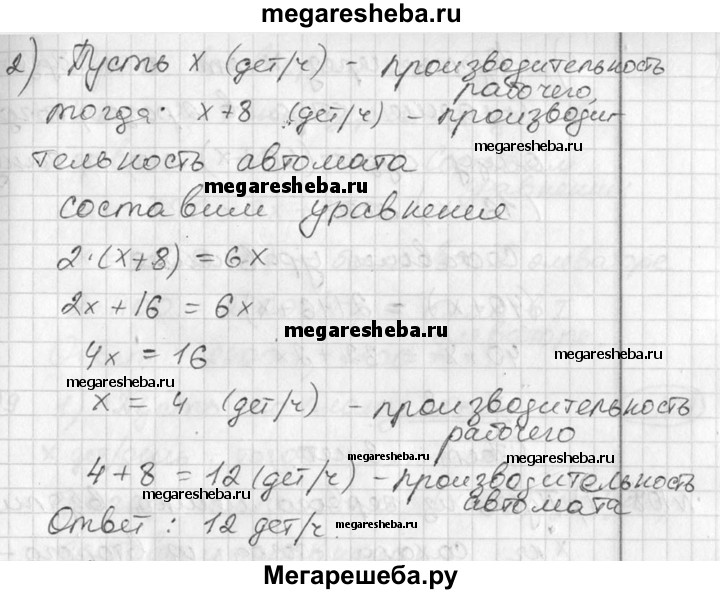 megaresheba.ru
2) Пусть x (дет/ч) - производительность
рабочего,
тогда x+8 (дет/ч) - производи-
megaresheba.ru
тельность автомата
megaresheba.ru
составим уравнения
2·(x+8) = 6x
2x + 16 = 6x
megaresheba.ru
4x = 16
megaresheba.ru
megaresheba.ru
x = 4 (дет/ч) - производительность
рабочего
megaresheba.ru
4+8 = 12 (дет/ч) - производительность
megaresheba.ru
автомата
Ответ: 12 дет/ч.
megaresheba.ru
Мегарешеба.ру